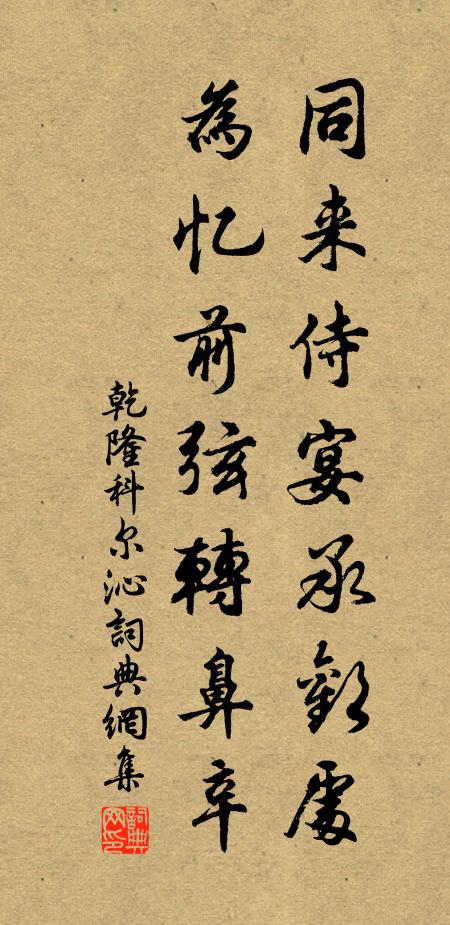 同来侍宴承歡處
為忆前弦轉鼻辛
乾隆科尔沁詞典網集
詞典网印